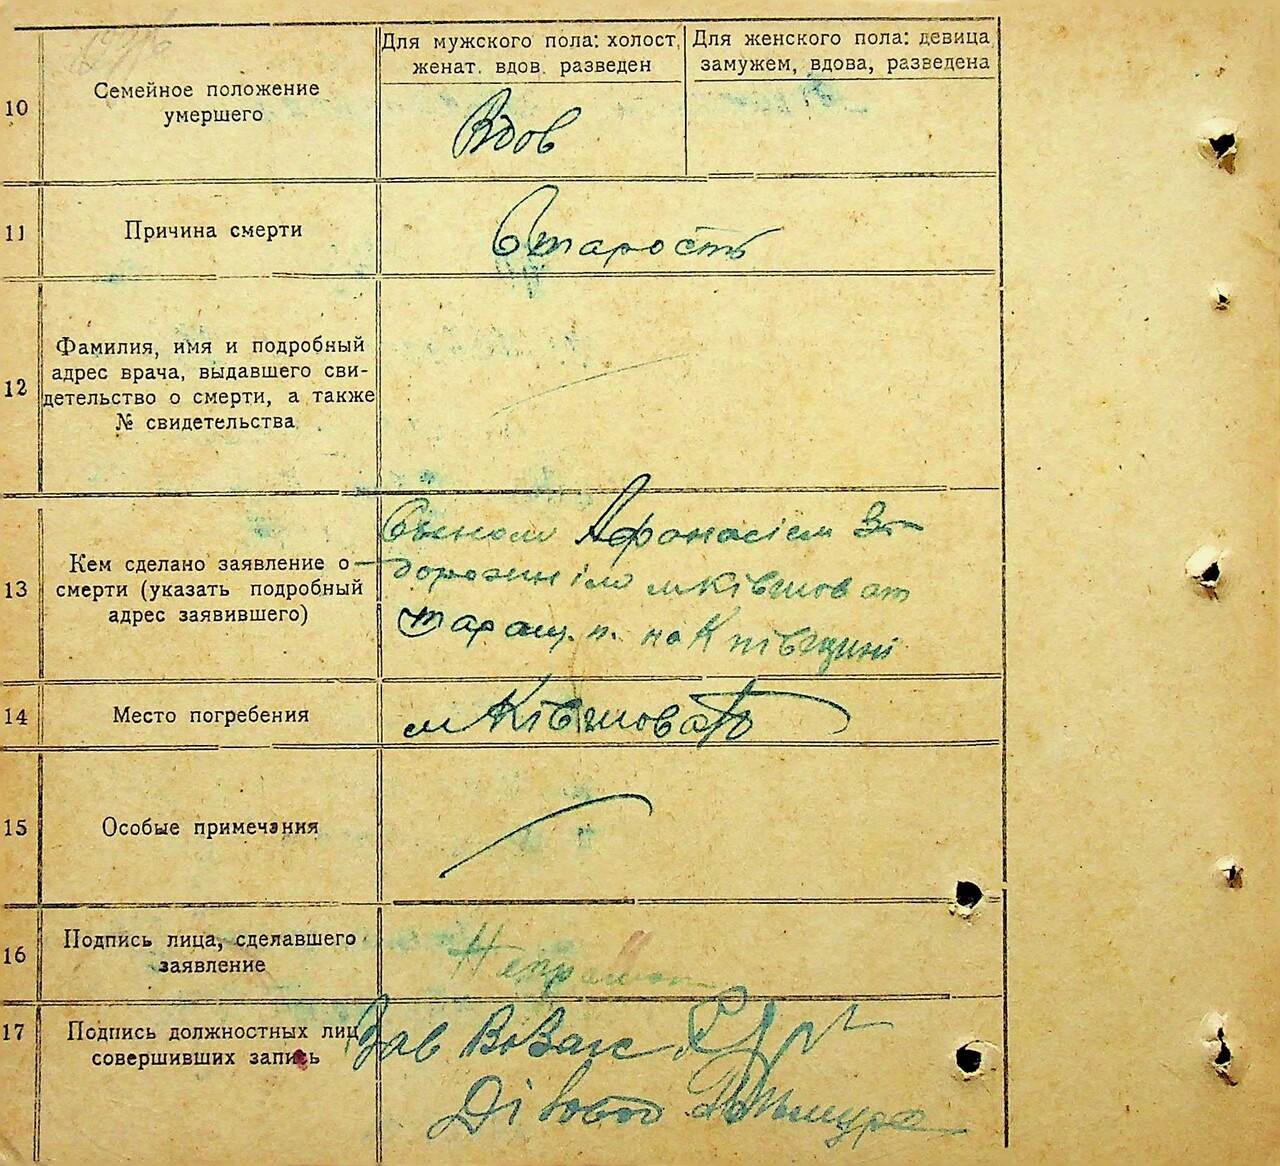 10
Семейное положение
умершего
Для мужского пола: холост,
женат. вдов. разведен
Для женского пола: девица,
замужем, вдова, разведена
Вдов
11
Причина смерти
Старость
12
Фамилия, имя и подробный
адрес врача, выдавшего сви-
детельство о смерти, а также
№ свидетельства
13
Кем сделано заявление о
смерти (указать подробный
адрес заявившего)
Сыном Афонасієм
м Ківшоват
таращ. р. на Київщині
14
Место погребения
м Ківшовата
15
Особые примечания
16
Подпись лица, сделавшего
заявление
Неграмот
17
Подпись должностных лиц
совершивших запись
Зав
Діловод